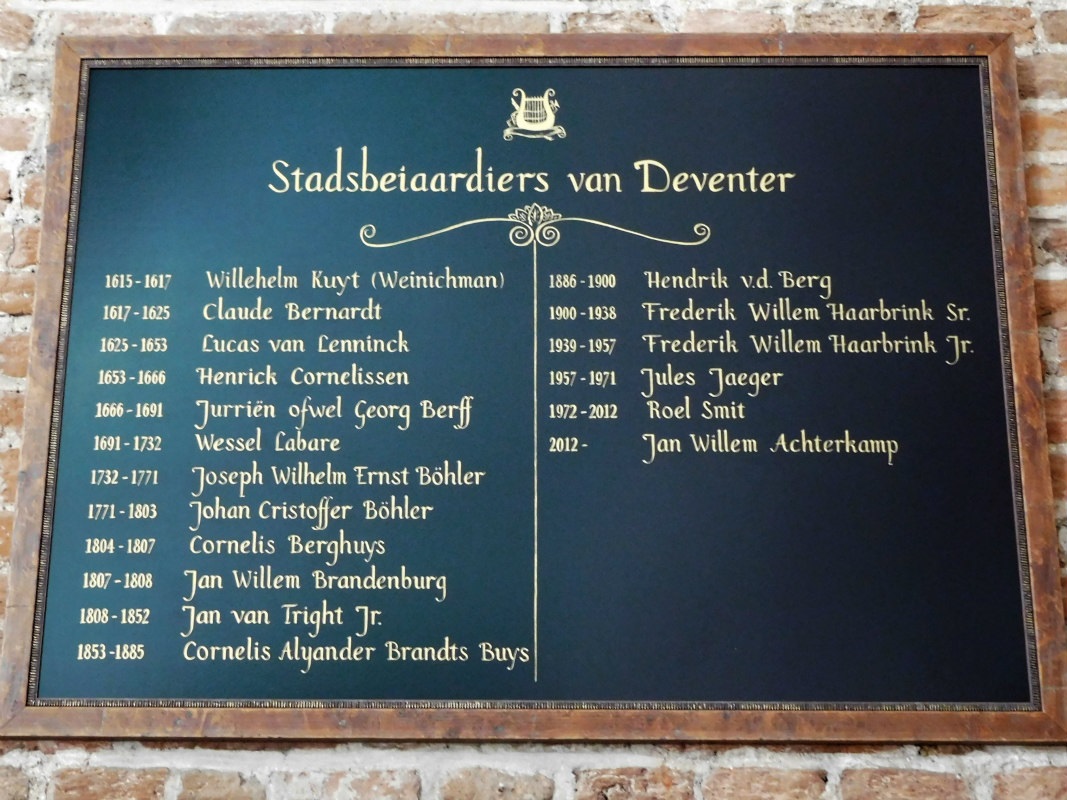 Stadsbeiaardiers van Deventer
1615 - 1617 Willehelm Kuyt (Weinichman)
1617 - 1625 Claude Bernardt
1625 - 1653 Lucas van Lenninck
1653 - 1666 Henrick Cornelissen
1666 - 1691 Jurriën ofwel Georg Berff
1691 - 1732 Wessel Labare
1732 - 1771 Joseph Wilhelm Ernst Böhler
1771 - 1803 Johan Cristoffer Böhler
1804 - 1807 Cornelis Berghuys
1807 - 1808 Jan Willem Brandenburg
1808 - 1852 Jan van Tright Jr.
1853 - 1885 Cornelis Alyander Brandts Buys
1886 - 1900 Hendrik v.d. Berg
1900 - 1938 Frederik Willem Haarbrink Sr.
1939 - 1957 Frederik Willem Haarbrink Jr.
1957 - 1971 Jules Jaeger
1972 - 2012 Roel Smit
2012 - Jan Willem Achterkamp